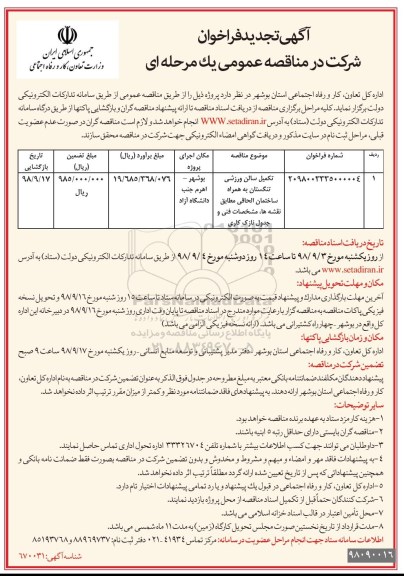 آگهی تجدید فراخوان
شرکت در مناقصه عمومی یك مرحله ای
جمهوری اسلامی ایران
وزارت تعاون، کار و رفاه اجتماعی
اداره کل تعاون، کار و رفاه اجتماعی استان بوشهر در نظر دارد پروژه ذیل را از طریق مناقصه عمومی از طریق سامانه تدارکات الکترونیکی
دولت برگزار نماید. کلیه مراحل برگزاری مناقصه از دریافت اسناد مناقصه تا ارائه پیشنهاد مناقصه گران و بازگشایی پاکتها از طریق درگاه سامانه
تدارکات الکترونیکی دولت (ستاد) به آدرس WWW.setadiran.ir انجام خواهد شد و لازم است مناقصه گران در صورت عدم عضویت
قبلی، مراحل ثبت نام در سایت مذکور و دریافت گواهی امضاء الکترونیکی جهت شرکت در مناقصه محقق سازند.
ردیف شماره فراخوان موضوع مناقصه مکان اجرای پروژه مبلغ برآورد (ریال) مبلغ تضمین (ریال) تاریخ بازگشایی
۱ ۲۰۹۸۰۰۲۳۳۵۰۰۰۰۰۴ تکمیل سالن ورزشی تنگستان به همراه ساختمان الحاقی مطابق نقشه ها، مشخصات فنی و جدول نازک کاری بوشهر – اهرم جنب دانشگاه آزاد ۱۹/۶۸۵/۳۶۸/۰۷۶ ۹۸۵/۰۰۰/۰۰۰ ریال ۹۸/۹/۱۷
تاریخ دریافت اسناد مناقصه:
از روز یکشنبه مورخ ۹۸/۹/۳ تا ساعت ۱۴ روز دوشنبه مورخ ۹۸/۹/۴ از طریق سامانه تدارکات الکترونیکی دولت (ستاد) به آدرس
www.setadiran.ir می باشد.
مکان و مهلت تحویل پیشنهاد:
آخرین مهلت بارگذاری مدارك و پیشنهاد قیمت به صورت الکترونیکی در سامانه ستاد تا ساعت ۱۵ روز شنبه مورخ ۹۸/۹/۱۶ و تحویل نسخه
فیزیکی پاکات مناقصه به مناقصه گزار با رعایت موارد مندرج در اسناد مناقصه تا پایان وقت اداری روز شنبه مورخ ۹۸/۹/۱۶ در دبیرخانه این اداره
کل واقع در بوشهر. چهار راه کشتیرانی می باشد. (ارائه نسخه فیزیکی الزامی می باشد)
مکان و زمان بازگشایی پاکتها:
اداره کل تعاون، کار و رفاه اجتماعی استان بوشهر - دفتر مدیر پشتیبانی و توسعه منابع انسانی . روز یکشنبه مورخ ۹۸/۹/۱۷ ساعت ۹ صبح
تضمین شرکت در مناقصه:
پیشنهاد دهندگان مکلفند ضمانتنامه بانکی معتبر به مبلغ مطروحه در جدول فوق الذکر به عنوان تضمین شرکت در مناقصه به نام اداره کل تعاون،
کار و رفاه اجتماعی استان بوشهر ارائه دهند. به پیشنهادهای فاقد ضمانتنامه مورد نظر و کمتر از میزان مقرر ترتیب اثر داده نخواهد شد.
سایر توضیحات:
۱-هزینه کارمزد ستاد به عهده برنده مناقصه خواهد بود.
۲-مناقصه گران بایستی دارای حداقل رتبه ۵ ابنیه باشند.
۳-داوطلبان می توانند جهت کسب اطلاعات بیشتر با شماره تلفن ۳۳۳۲۶۷۰۴ اداره تحویل اداری تماس حاصل نمایند.
۴-به پیشنهادات فاقد مهر و امضاء و مبهم و مشروط و مخدوش و بدون تضمین شرکت در مناقصه بصورت فقط ضمانت نامه بانکی و
همچنین پیشنهاداتی که پس از تاریخ تعیین شده ارائه گردد مطلقاً ترتیب اثر داده نخواهد شد.
۵-اداره کل تعاون، کار و رفاه اجتماعی در قبول یك پیشنهاد و یا رد تمامی پیشنهادات اختیار تام دارد.
۶-شرکت کنندگان حتماً قبل از تکمیل اسناد مناقصه از محل پروژه بازدید نمایند.
۷-محل تأمین اعتبار در قالب اسناد خزانه اسلامی می باشد.
۸-مدت قرارداد از تاریخ نخستین صورت مجلس تحویل کارگاه (زمین) به مدت ۱۱ ماه شمسی می باشد.
اطلاعات سامانه ستاد جهت انجام مراحل عضویت در سامانه: مرکز تماس ۴۱۹۳۴-۰۲۱ دفتر ثبت نام: ۸۸۹۶۹۷۳۷ و ۸۵۱۹۳۷۶۸
۹۸۰۹۰۰۱۶
شناسه آگهی: ۶۷۰۰۳۱